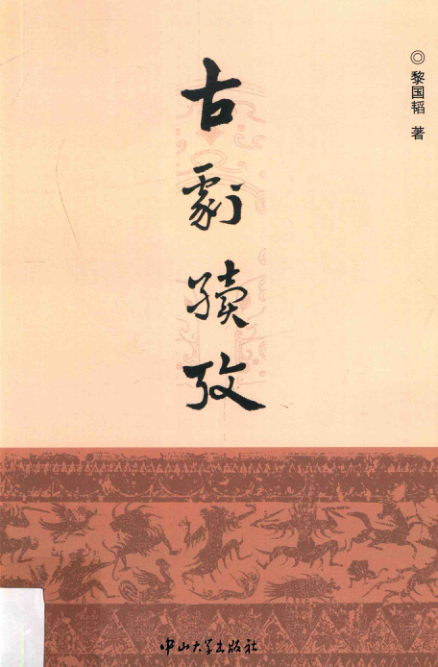 ◎黎国韬 著
古劇續攷
中山大学出版社